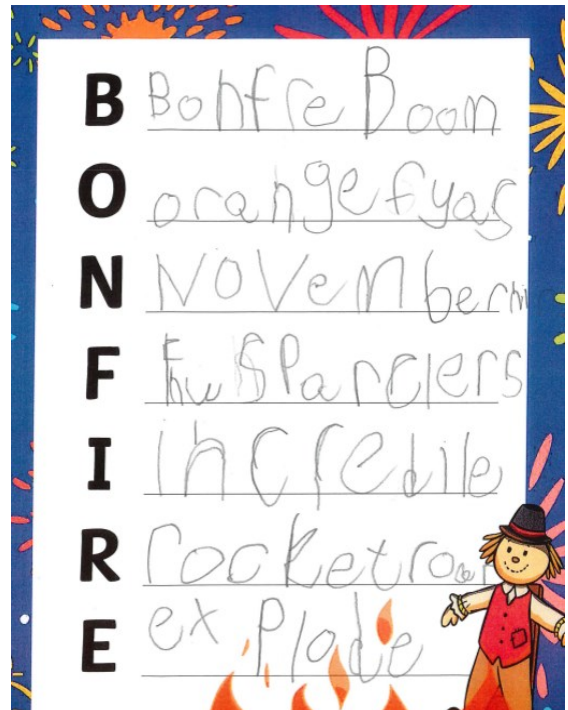 B Bonfre Boom
O orange fyas
N November
F Fuw Sparclers
I increдile
R rocket roar
E explode